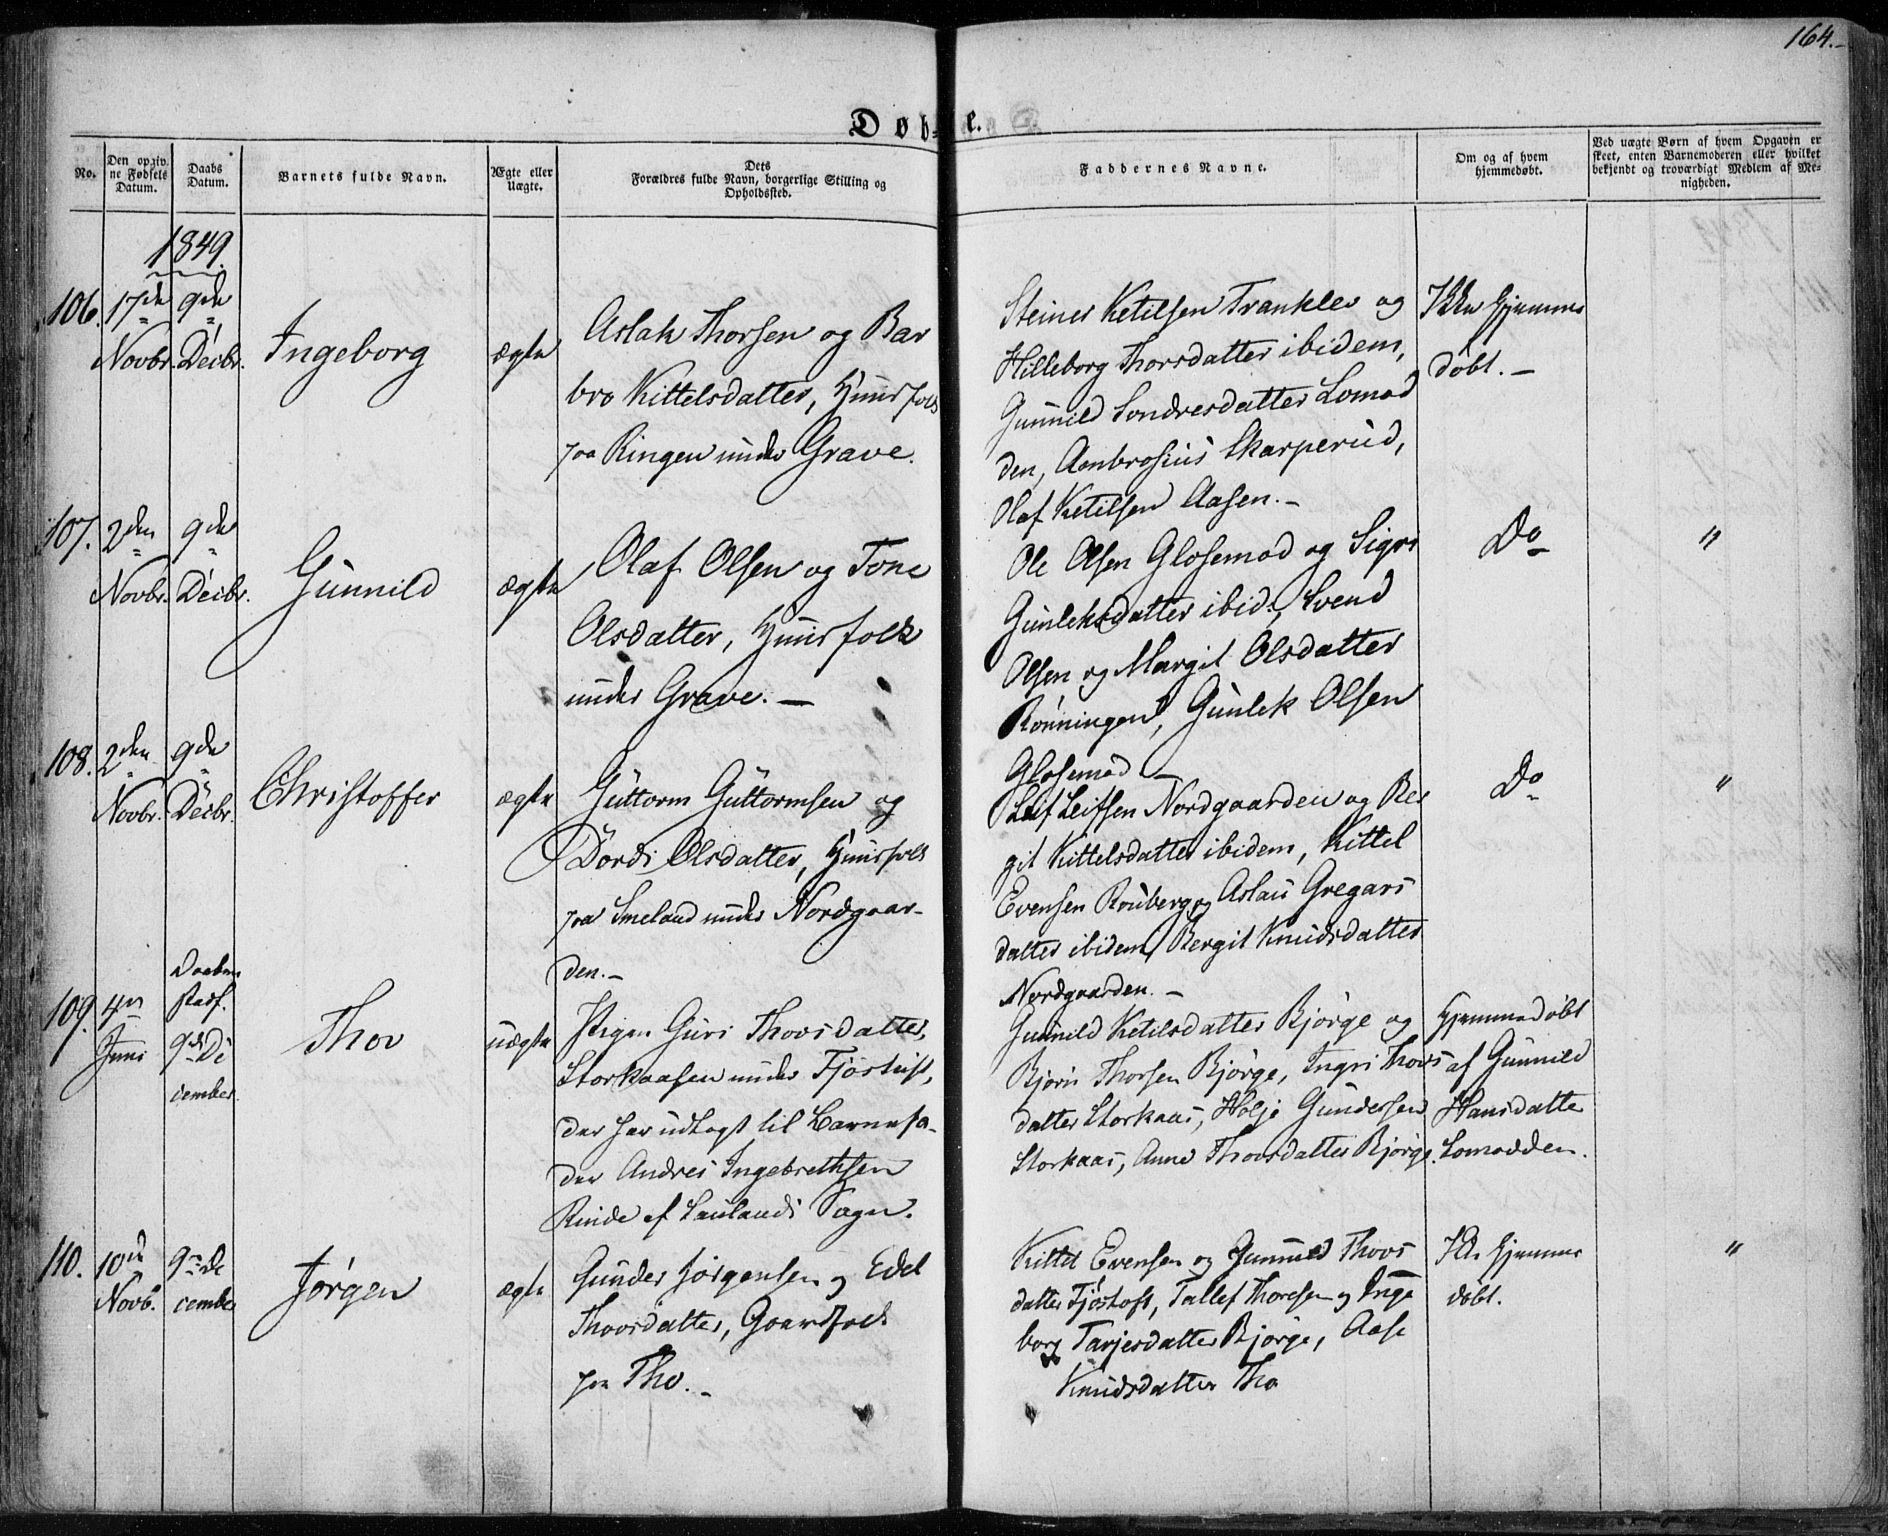 164.-
Døbte.
No.
Den opgivne Fødsels Datum.
Daabs Datum.
Barnets fulde Navn.
Ægte eller Uægte.
Dets Forældres fulde Navn, borgerlige Stilling og Opholdssted.
Faddernes Navne.
Om og af hvem hjemmedøbt.
Ved uægte Børn af hvem Opgaven er skeet, enten Barnemoderen eller hvilket bekjendt og troværdigt Medlem af Menigheden.
1849.
106.
17de Novbr.
9de Decbr.
Ingeborg
ægte
Aslak Thorsen og Bar
bro Kittelsdatter, Huusfolk
paa Ringen under Grave.
Steiner Ketilsen Tranklev og
Hilleborg Thorsdatter ibidem,
Gunnild Sondresdatter Lomod
den, Ambrosius Skarperud,
Olaf Ketilsen Aasen.-
Ikke hjemme
døbt.-
107.
2den Novbr.
9de Decbr.
Gunnild
ægte
Olaf Olsen og Tone
Olsdatter, Huusfolk
under Grave.-
Ole Olsen Glosemod og Sigri
Gunleksdatter ibid., Svend
Olsen og Margit Olsdatter
Rønningen, Gunlek Olsen
Glosemod -
Do
"
108.
2den Novbr.
9de Decbr.
Christoffer
ægte
Guttorm Guttormsen og
Dordi Olsdatter, Huusfolk
paa Smeland under Nordgaar-
den.-
Leif Leifsen Nordgaarden og Ber
git Kittelsdatter ibidem, Kittel
Evensen Rouberg og Aslau Gregars
datter ibidem, Bergit Knudsdatter
Nordgaarden.-
Do
"
109.
4de Juni
Daaben
stadf.
9de De
cember
Thov
uægte
Pigen Guri Thovsdatter,
Storkaasen under Tjøstuft,
der har udlagt til Barnefa-
der Andres Ingebrethsen
Rinde af Laulands Sogn.
Gunnild Ketilsdatter Bjørge og
Bjørn Thorsen Bjørge, Ingri Thovs
datter Storkaas, Holje Gundersen
Storkaas, Anne Thovsdatter Bjørge.
Hjemmedøbt
af Gunnild
Hansdatter
Lomodden.
110.
10de Novb.
9de De
cember
Jørgen
ægte
Gunder Jørgensen og Edel
Thovsdatter, Gaardfolk
paa Tho.-
Kittel Evensen og Gunnild Thovs
datter Tjøstoft, Tallef Thoresen og Inge
borg Tarjesdatter Bjørge, Aase
Knudsdatter Tho
Ikke hjemme
døbt.
"